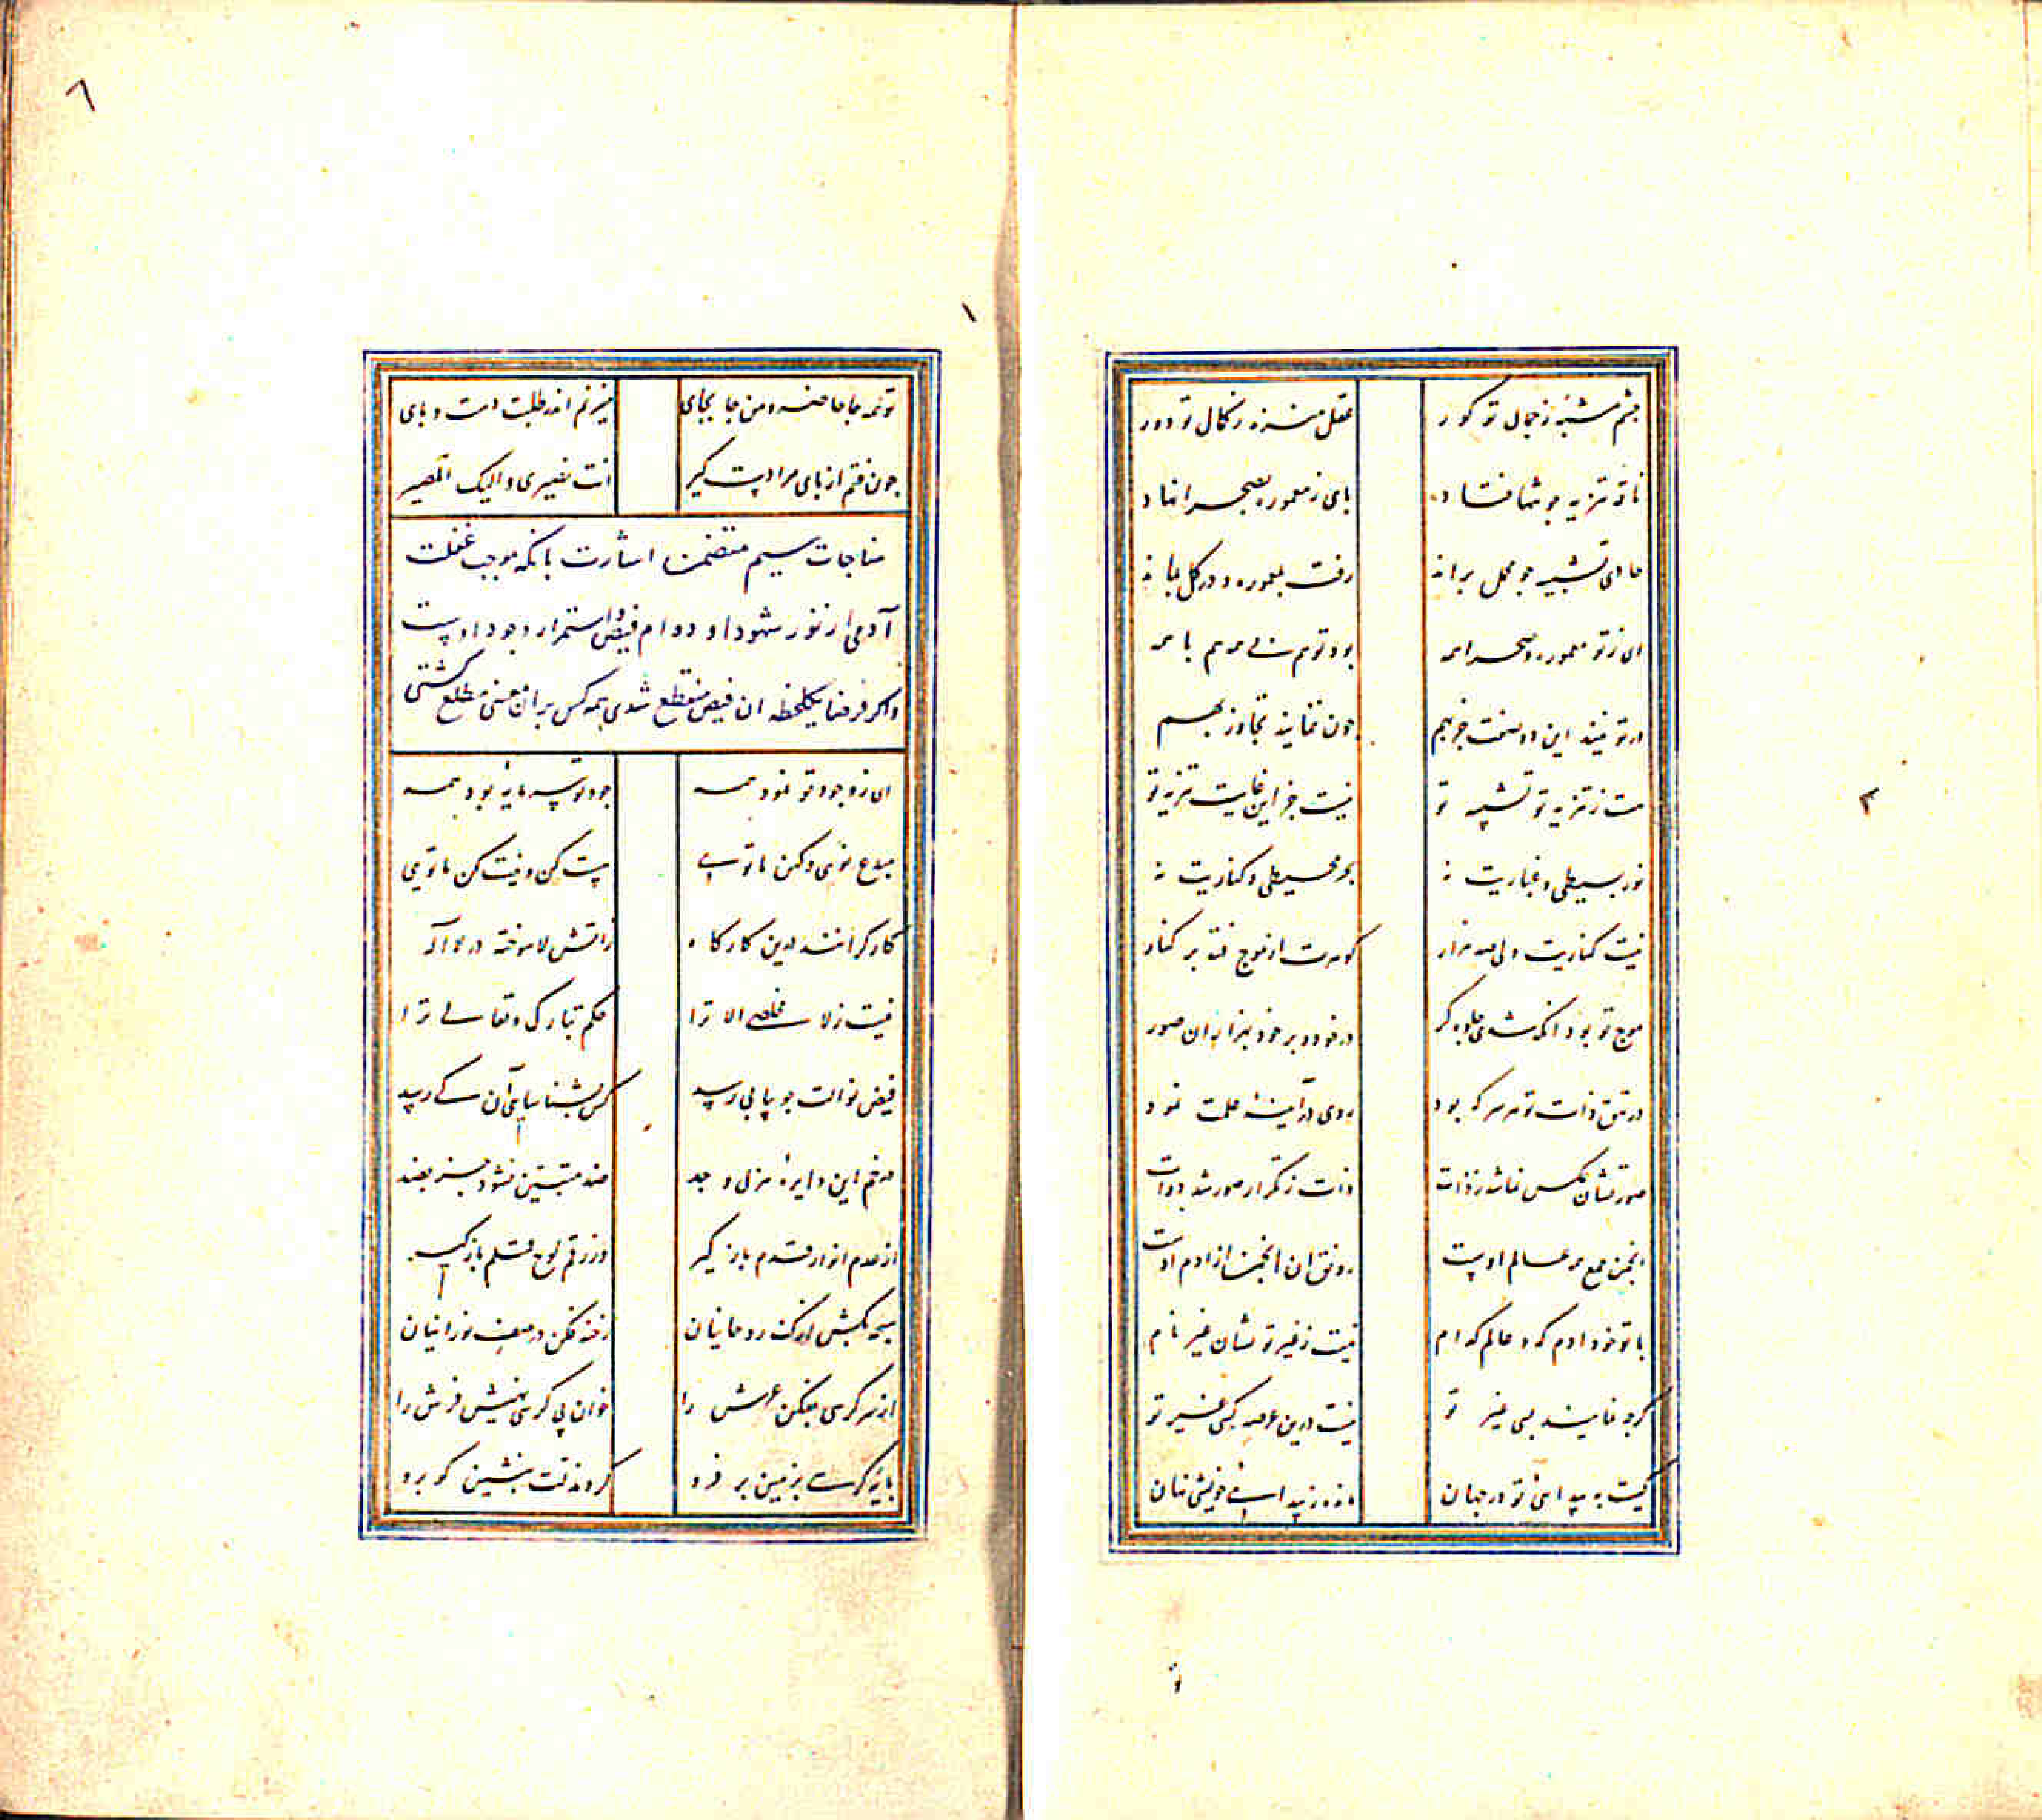 چشم مشبه ز جمال تو کور عقل منزه ز کمال تو دور
ناقه تنزیه چو تنها فتاد پای ز معموره بصحرا نهاد
حادی تشبیه چو محمل براند رفت بمعموره و در گل بماند
ای ز تو معموره و صحرا همه بود تو هم بی همه هم با همه
در تو نبیند این دو صفت جز بهم چون ننمایند تجاوز بهم
هست ز تنزیه تو تشبیه تو نیست جز این غایت تنزیه تو
نور بسیطی و غباریت نه بحر محیطی و کناریت نه
نیست کناریت ولی صد هزار گوهرت از موج فتد بر کنار
موج تو بود آنکه شدی جلوه گر در خود و بر خود بهزاران صور
در تتق ذات تو هر سر که بود روی در آینه علمت نمود
صورتشان عکس نما شد ز ذات ذات ز تکرار صور شد ذوات
انجمن جمع همه عالم اوست رونق ان انجمن از ادم اوست
با تو خود ادم که و عالم کدام نیست ز غیر تو نشان غیر نام
گرچه نمایند بسی غیر تو نیست درین عرصه کسی غیر تو
کیست به پیدایی تو در جهان مانده ز پیدایی خویشی نهان
تو
۲
۸
۱
تو همه جا حاضر و من جا بجای میزنم اندر طلبت دست و پای
چون فتم از پای مرا دست گیر انت نصیری و الیک المصیر
مناجات سیم متضمن اشارت بانکه موجب غفلت
آدمی از نور شهود او دوام فیض و استمرار وجود اوست
و اگر فرضا یکلحظه ان فیض منقطع شدی همه کس بر ان معنی مطلع گشتی
ای ز وجود تو نمود همه جود تو سرمایه بود همه
مبدع نوی و کهن ما تویی هست کن و نیست کن ما تویی
کارگرانند درین کارگاه ز اتش لا سوخته در لا اله
نیست ز لا مخلصی الا ترا حکم تبارک و تعالی ترا
فیض نوالت چو پیاپی رسد کس بشناسایی آن کی رسد
در خم این دایره هزل و جد ضد متبین نشود جز بضد
از عدم انوار قدم باز گیر ور رقم لوح قلم باز گیر
سبحه بکش از کف روحانیان رخنه فکن در صف نورانیان
از سر کرسی بفکن عرش را خوان پی کرسی بنشین فرش را
پایه کرسی بزمین بر فرو گرد مذلت بنشین کو برو